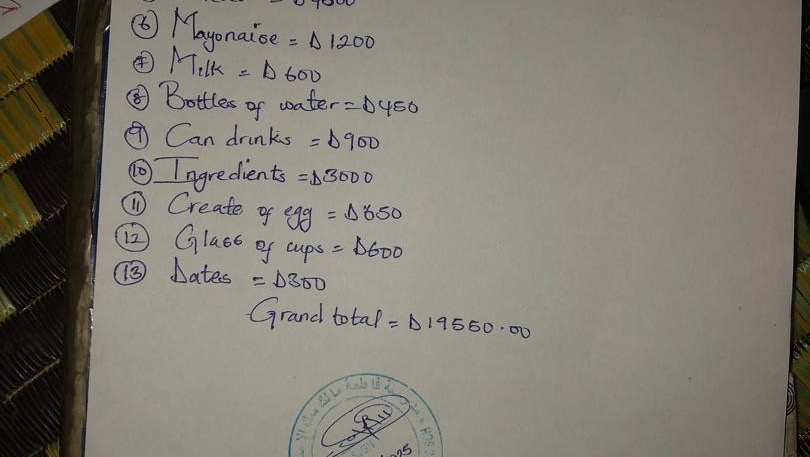 (6) Mayonaise = D1200
(7) Milk = D600
(8) Bottles of water = D450
(9) Can drinks = D900
(10) Ingredients = D3000
(11) Create of egg = D350
(12) Glass of cups = D600
(13) Dates = D300
Grand total = D19550.00